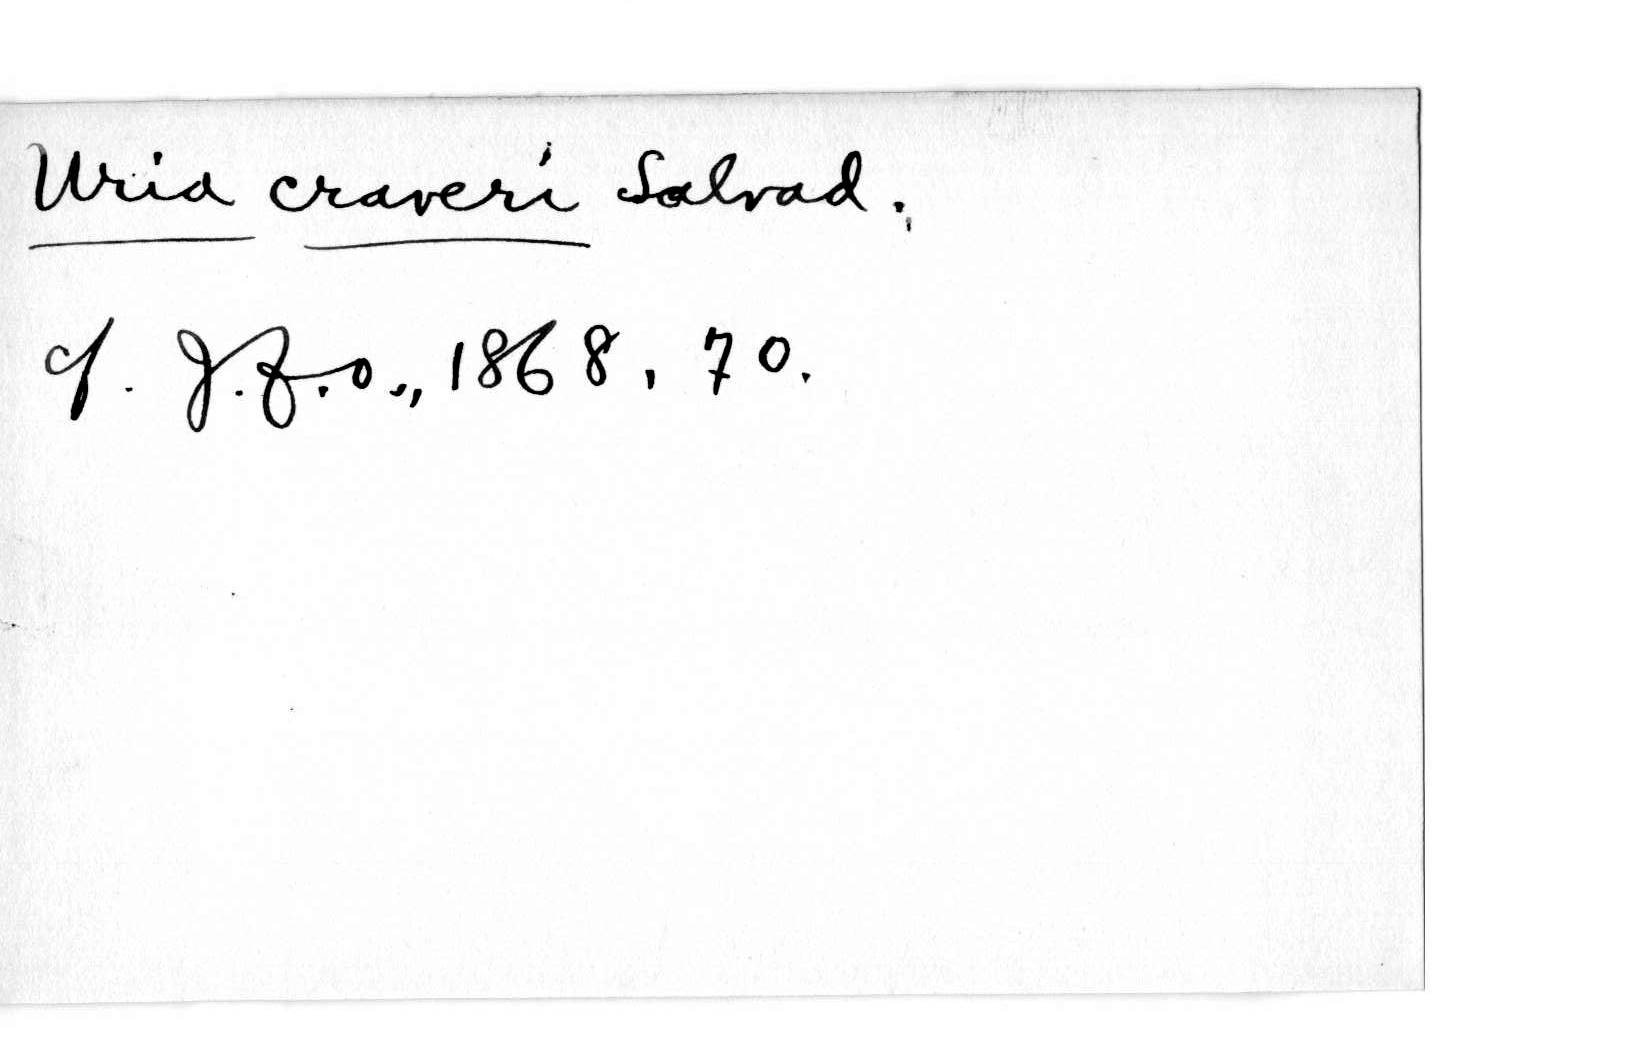 Uria craveri Salvad.
cf. J.f.O., 1868, 70.